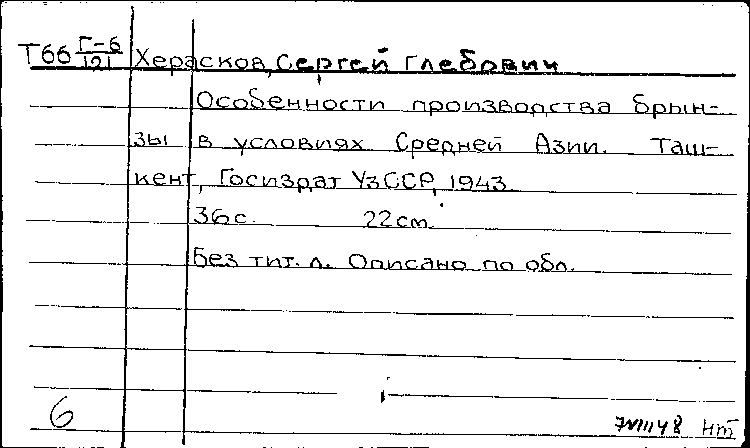 Т66 Г-6/121 Херасков, Сергей Глебович
Особенности производства брын-
зы в условиях Средней Азии. Таш-
кент, Госиздат УзССР, 1943.
36 с. 22 см.
Без тит. л. Описано по обл.
6 нт